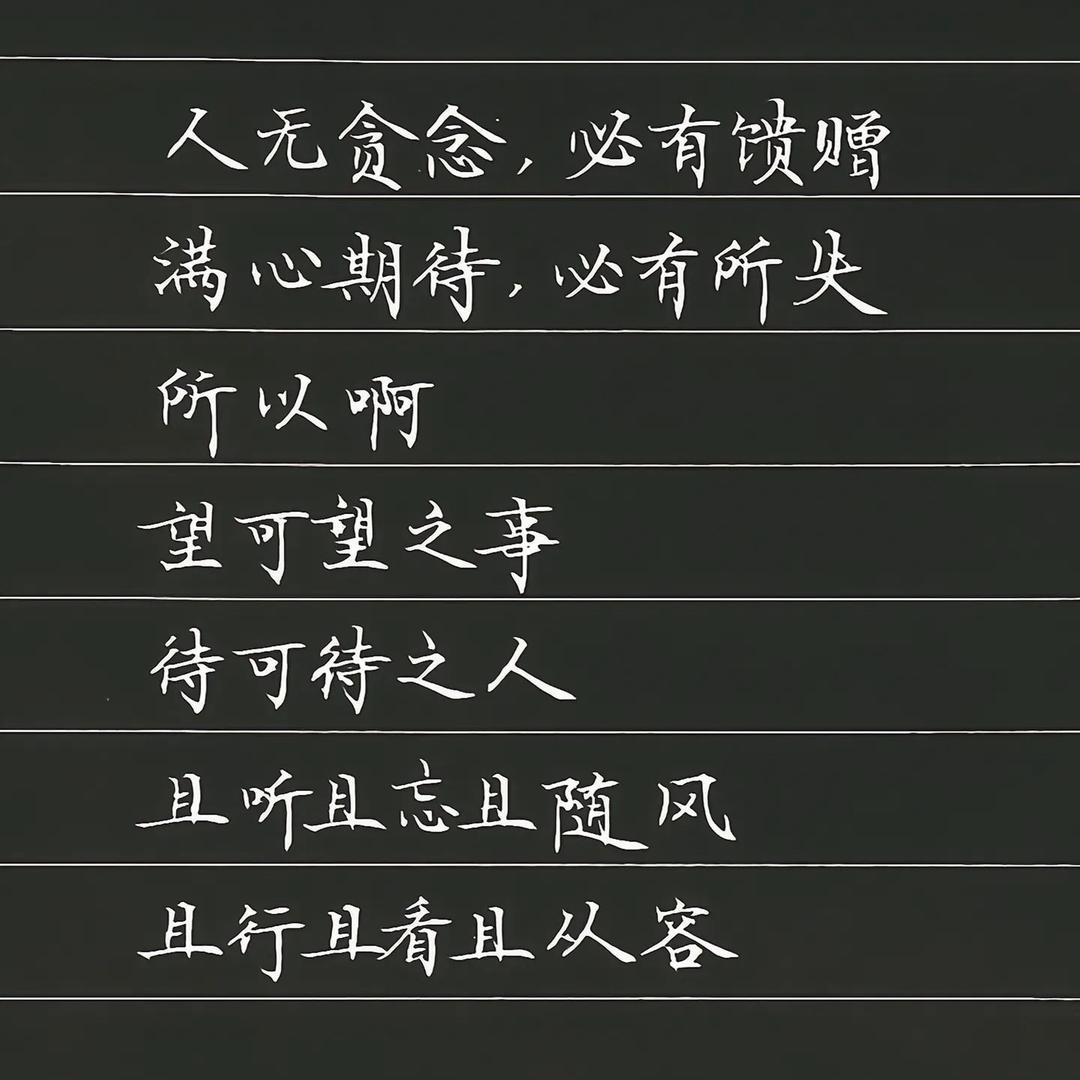 人无贪念,必有馈赠
满心期待,必有所失
所以啊
望可望之事
待可待之人
且听且忘且随风
且行且看且从容